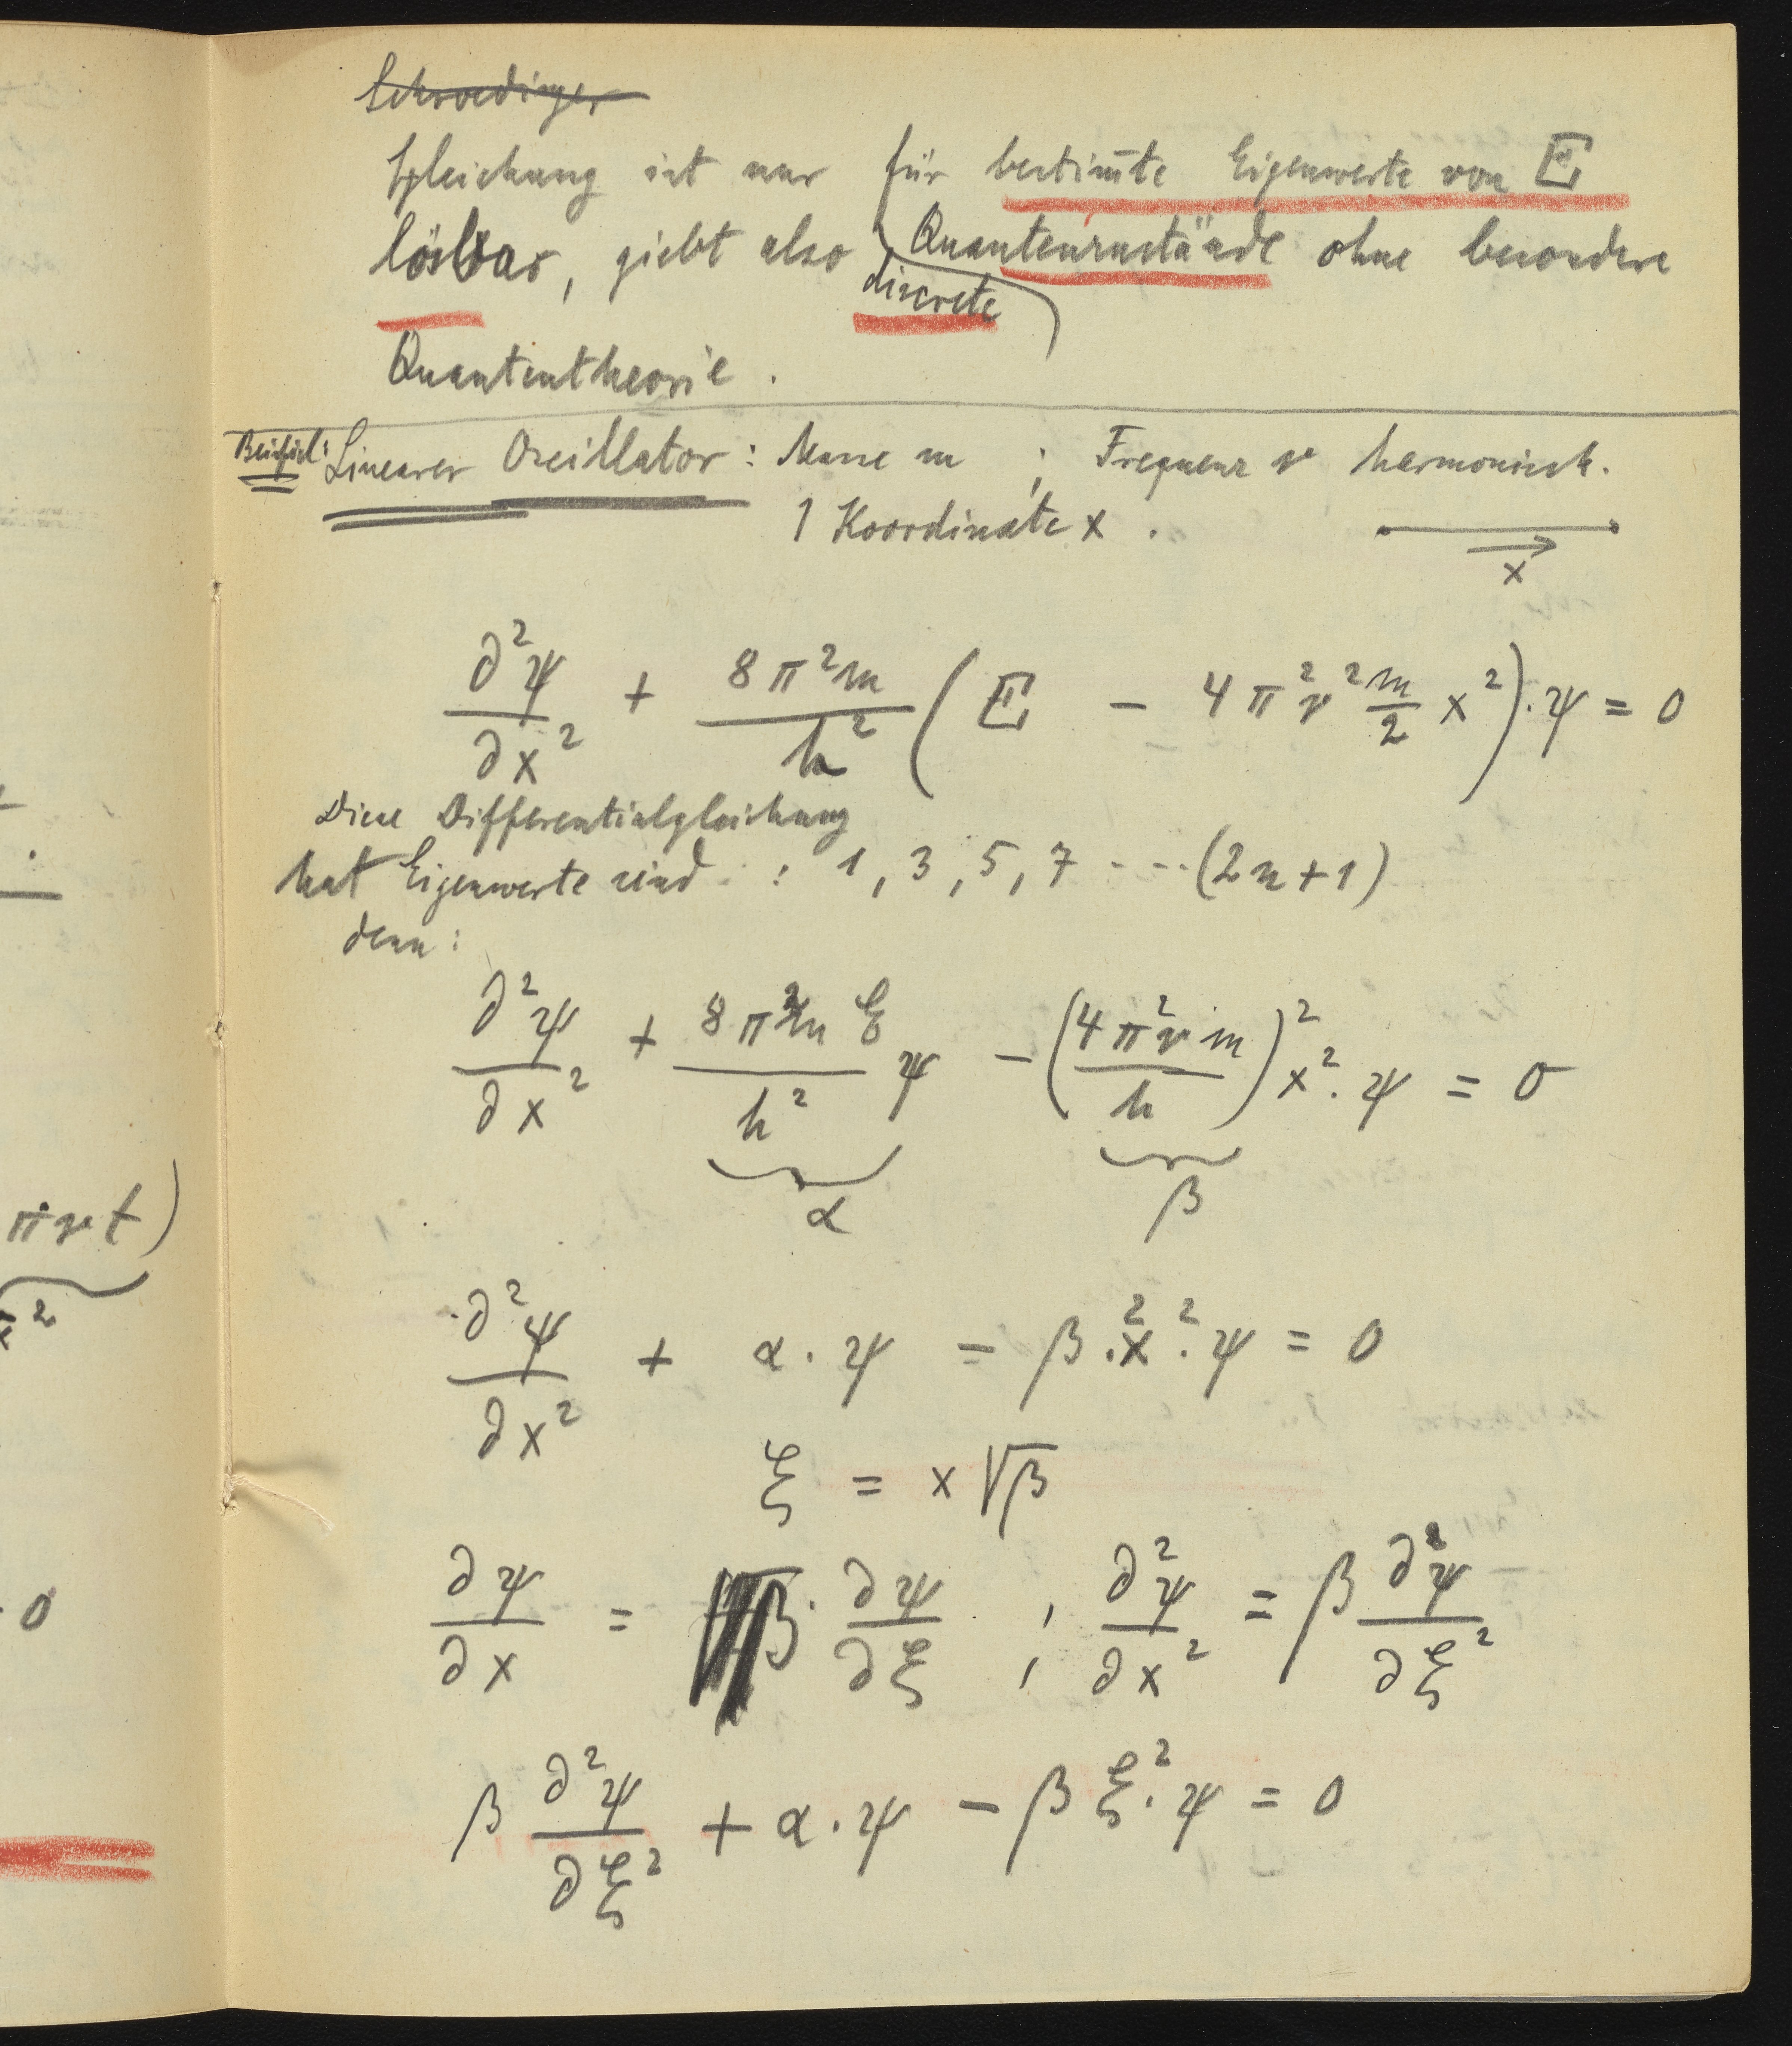 Schroedinger
Gleichung ist nur für bestim̅te Eigenwerte von E
lösbar, giebt also discrete Quantenzustände ohne besondere
Quantentheorie.
Beispiel: Linearer Oscillator: Masse m ; Frequenz ν harmonisch.
1 Koordinate x .
x
∂²ψ/∂x² + 8π²m/h² (E − 4π²ν² m/2 x²)·ψ = 0
Diese Differentialgleichung
hat Eigenwerte sind : 1, 3, 5, 7 - - - (2n+1)
denn:
∂²ψ/∂x² + 8π²m E/h² ψ − (4π²νm/h)² x²·ψ = 0
α β
∂²ψ/∂x² + α·ψ − β²·x²·ψ = 0
ξ = x√β
∂ψ/∂x = √β · ∂ψ/∂ξ ; ∂²ψ/∂x² = β ∂²ψ/∂ξ²
β ∂²ψ/∂ξ² + α·ψ − β ξ²·ψ = 0
πνt)
x²
0